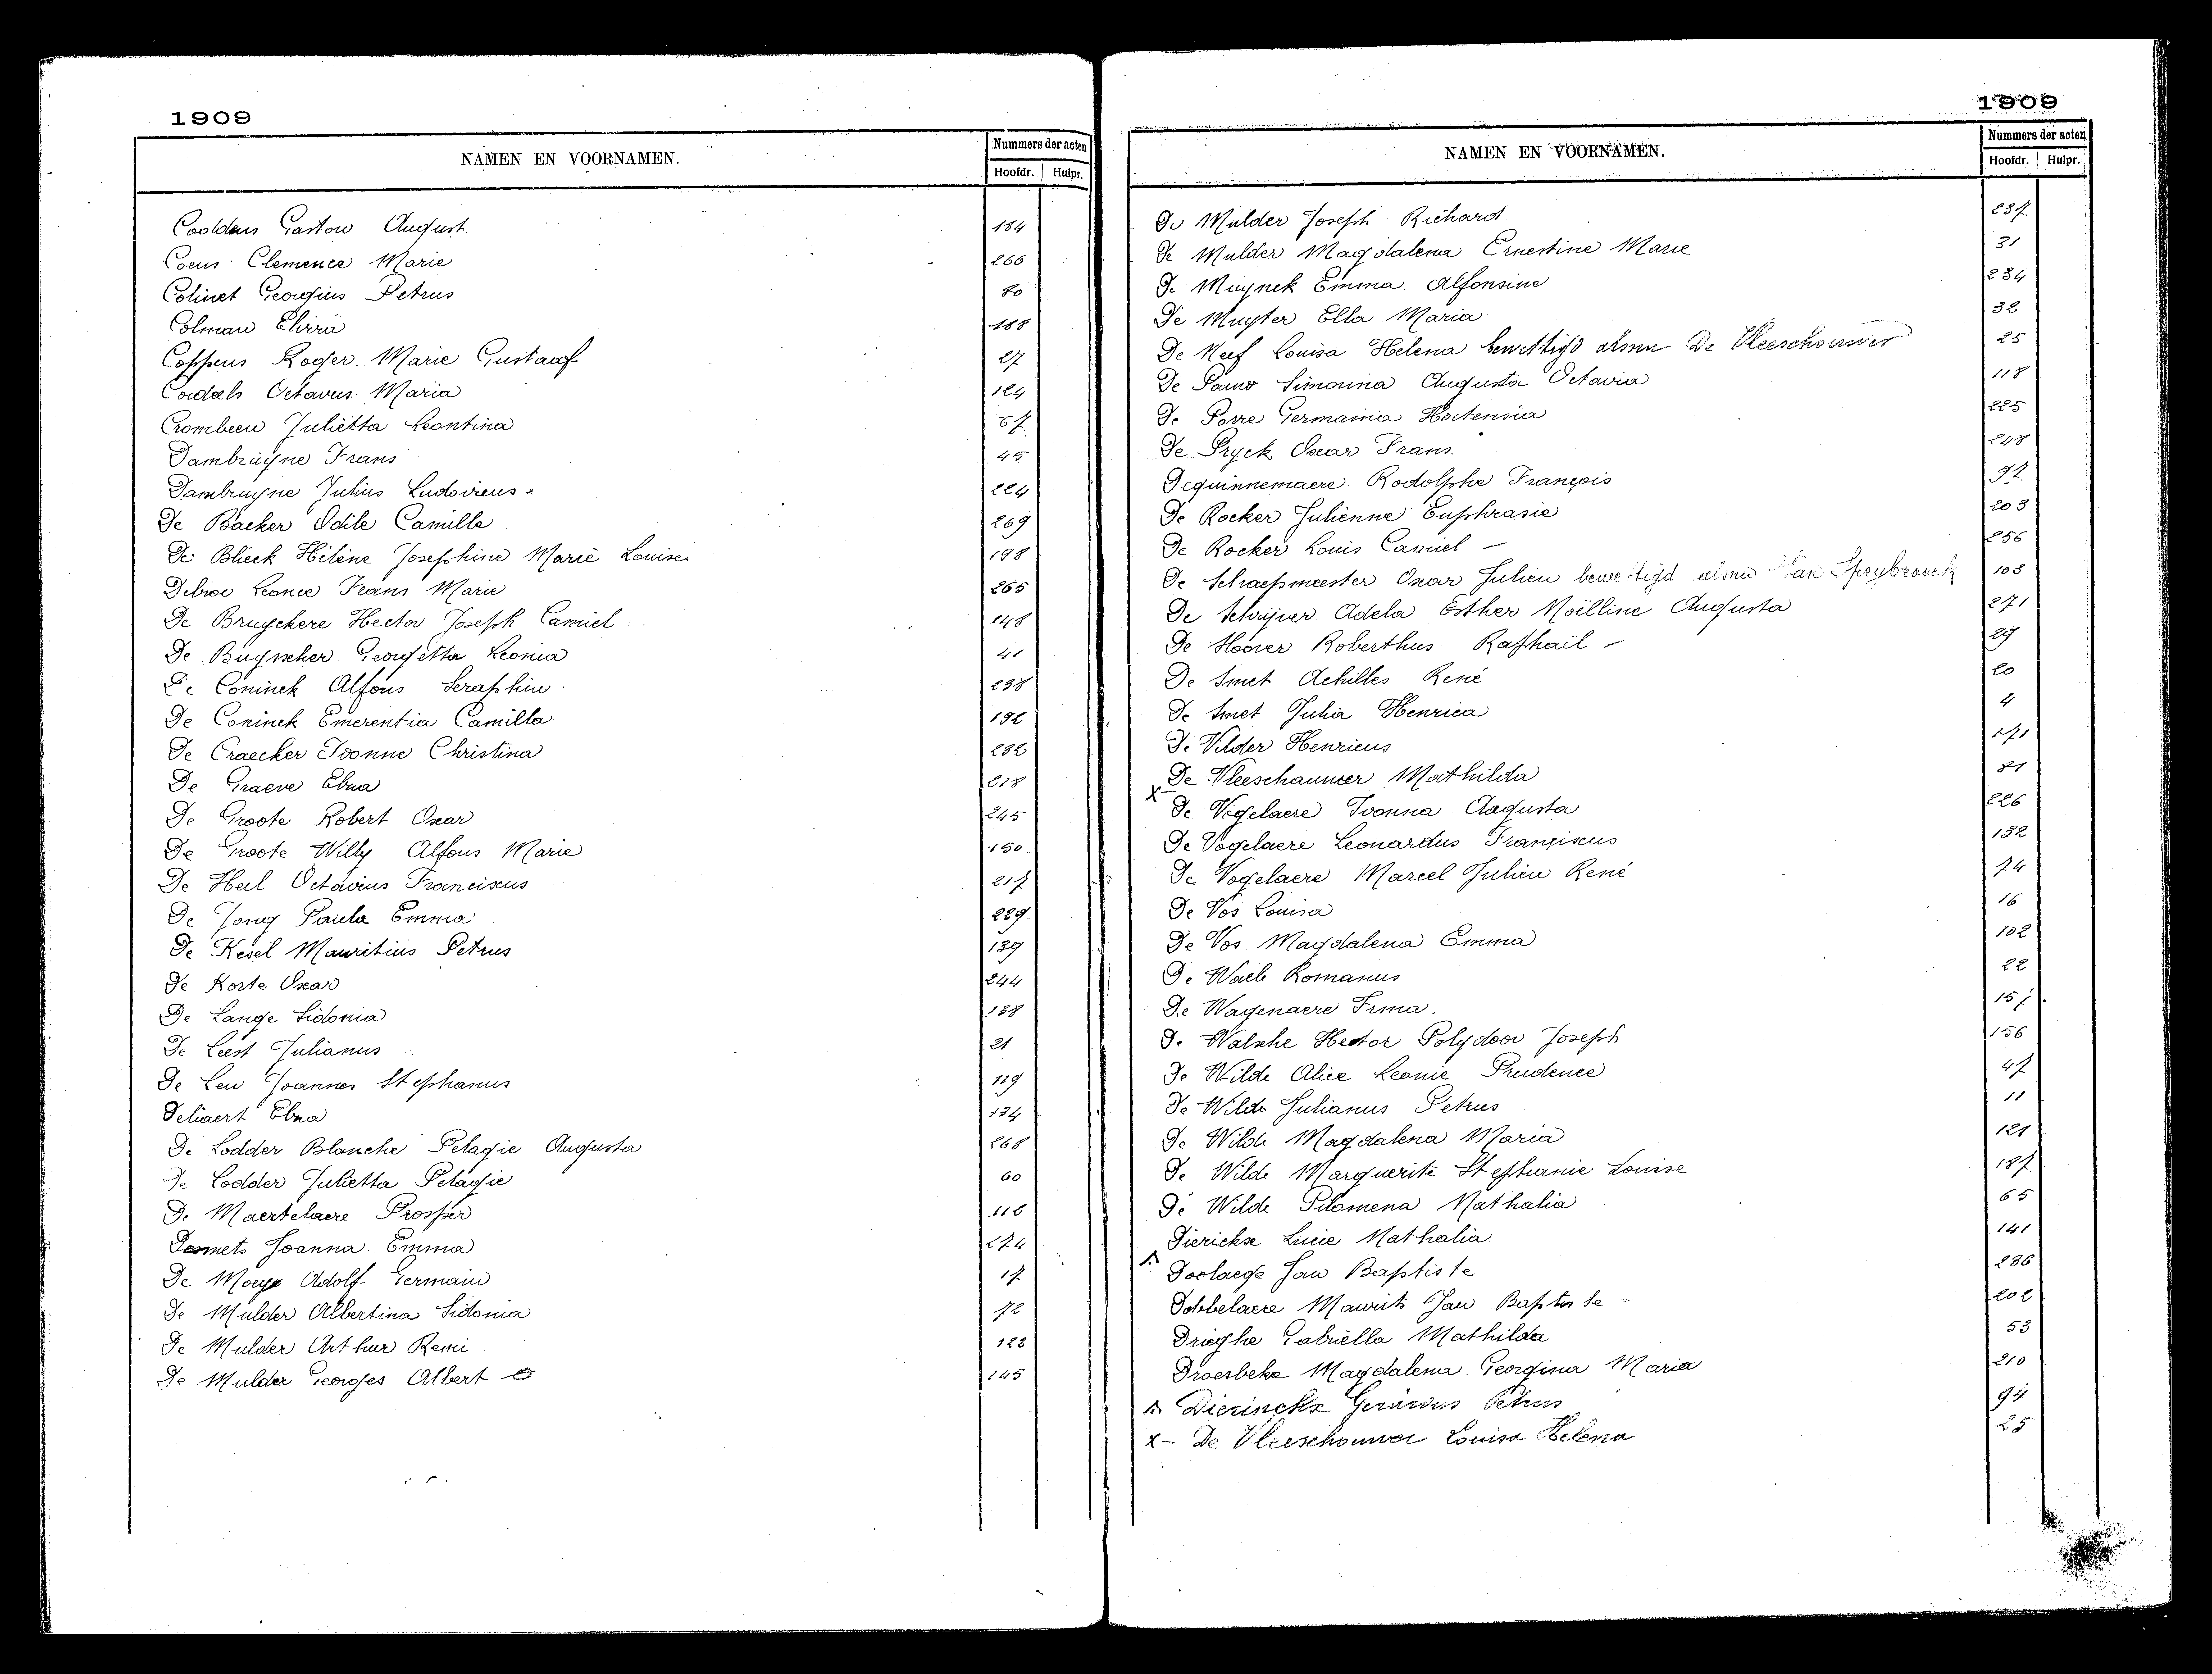 1909
NAMEN EN VOORNAMEN.
Nummers der acten
Hoofdr. Hulpr.
Gaston August. 184
Coens Clemence Marie 266
Colinet Georgius Petrus 80
Colman Elvira 188
Coppens Roger Marie Gustaaf 27
Octavus Maria 124
Crombeen Juliëtta Leontina 57
Dambruyne Frans 45
Dambruyne Julius Ludovicus 224
De Backer Odile Camilla 269
De Blieck Hélène Josephine Marie Louise 198
Leonce Frans Marie 265
De Bruyckere Hector Joseph Camiel 148
De Buysscher Georgetta Leonia 41
De Coninck Alfons Seraphin 238
De Coninck Emerentia Camilla 192
De Craecker Ivonne Christina 232
De Graeve Elza 218
De Groote Robert Oscar 245
De Groote Willy Alfons Marie 150
De Heel Octavius Franciscus 217
De Jong Paula Emma 229
De Kesel Mauritius Petrus 139
De Korte Oscar 244
De Lange Sidonia 138
De Leest Julianus 21
De Leu Joannes Stephanus 119
Deliaert Elza 134
De Lodder Blanche Pelagie Augusta 268
De Lodder Julietta Pelagie 60
De Maertelaere Prosper 112
Desmets Joanna Emma 274
De Moeye Adolf Germain 17
De Mulder Albertina Sidonia 72
De Mulder Arthur Remi 122
De Mulder Georges Albert 145
1909
NAMEN EN VOORNAMEN.
Nummers der acten
Hoofdr. Hulpr.
De Mulder Joseph Richard 237
De Mulder Magdalena Ernestine Marie 31
De Muynck Emma Alfonsine 234
De Muyter Ella Maria 32
De Neef Louisa Helena bewettigd alsnu De Vleeschouwer 25
De Pauw Simonna Augusta Octavia 118
De Porre Germaina Hortensia 225
De Pryck Oscar Frans. 248
Dequinnemaere Rodolphe François 92
De Rocker Julienne Euphrasie 203
De Rocker Louis Camiel 256
De Schaepmeester Oscar Julien bewettigd alsnu Van Speybroeck 103
De Schrijver Adela Esther Noëlline Augusta 271
De Roberthus Raphaël 29
De Smet Achilles René 20
De Smet Julia Henrica 4
De Vilder Henricus 171
De Vleeschauwer Mathilda 81
X
De Vogelaere Ivonna Augusta 226
De Vogelaere Leonardus Franciscus 132
De Vogelaere Marcel Julien René 74
De Vos Louisa 16
De Vos Magdalena Emma 102
De Waele Romanus 22
De Wagenaere Irma. 157
De Walsche Hector Polydoor Joseph 156
De Wilde Alice Leonie Prudence 47
De Wilde Julianus Petrus 11
De Wilde Magdalena Maria 121
De Wilde Marguerite Stephanie Louise 187
De Wilde Pilomena Nathalia 65
Dierickx Lucie Nathalia 141
Doolaege Jan Baptiste 236
Dobbelaere Maurits Jan Baptiste 202
Drieghe Gabriëlla Mathilda 53
Droesbeke Magdalena Georgina Maria 210
Dierinckx Gerardus Petrus 94
x- De Vleeschouwer Louisa Helena 25